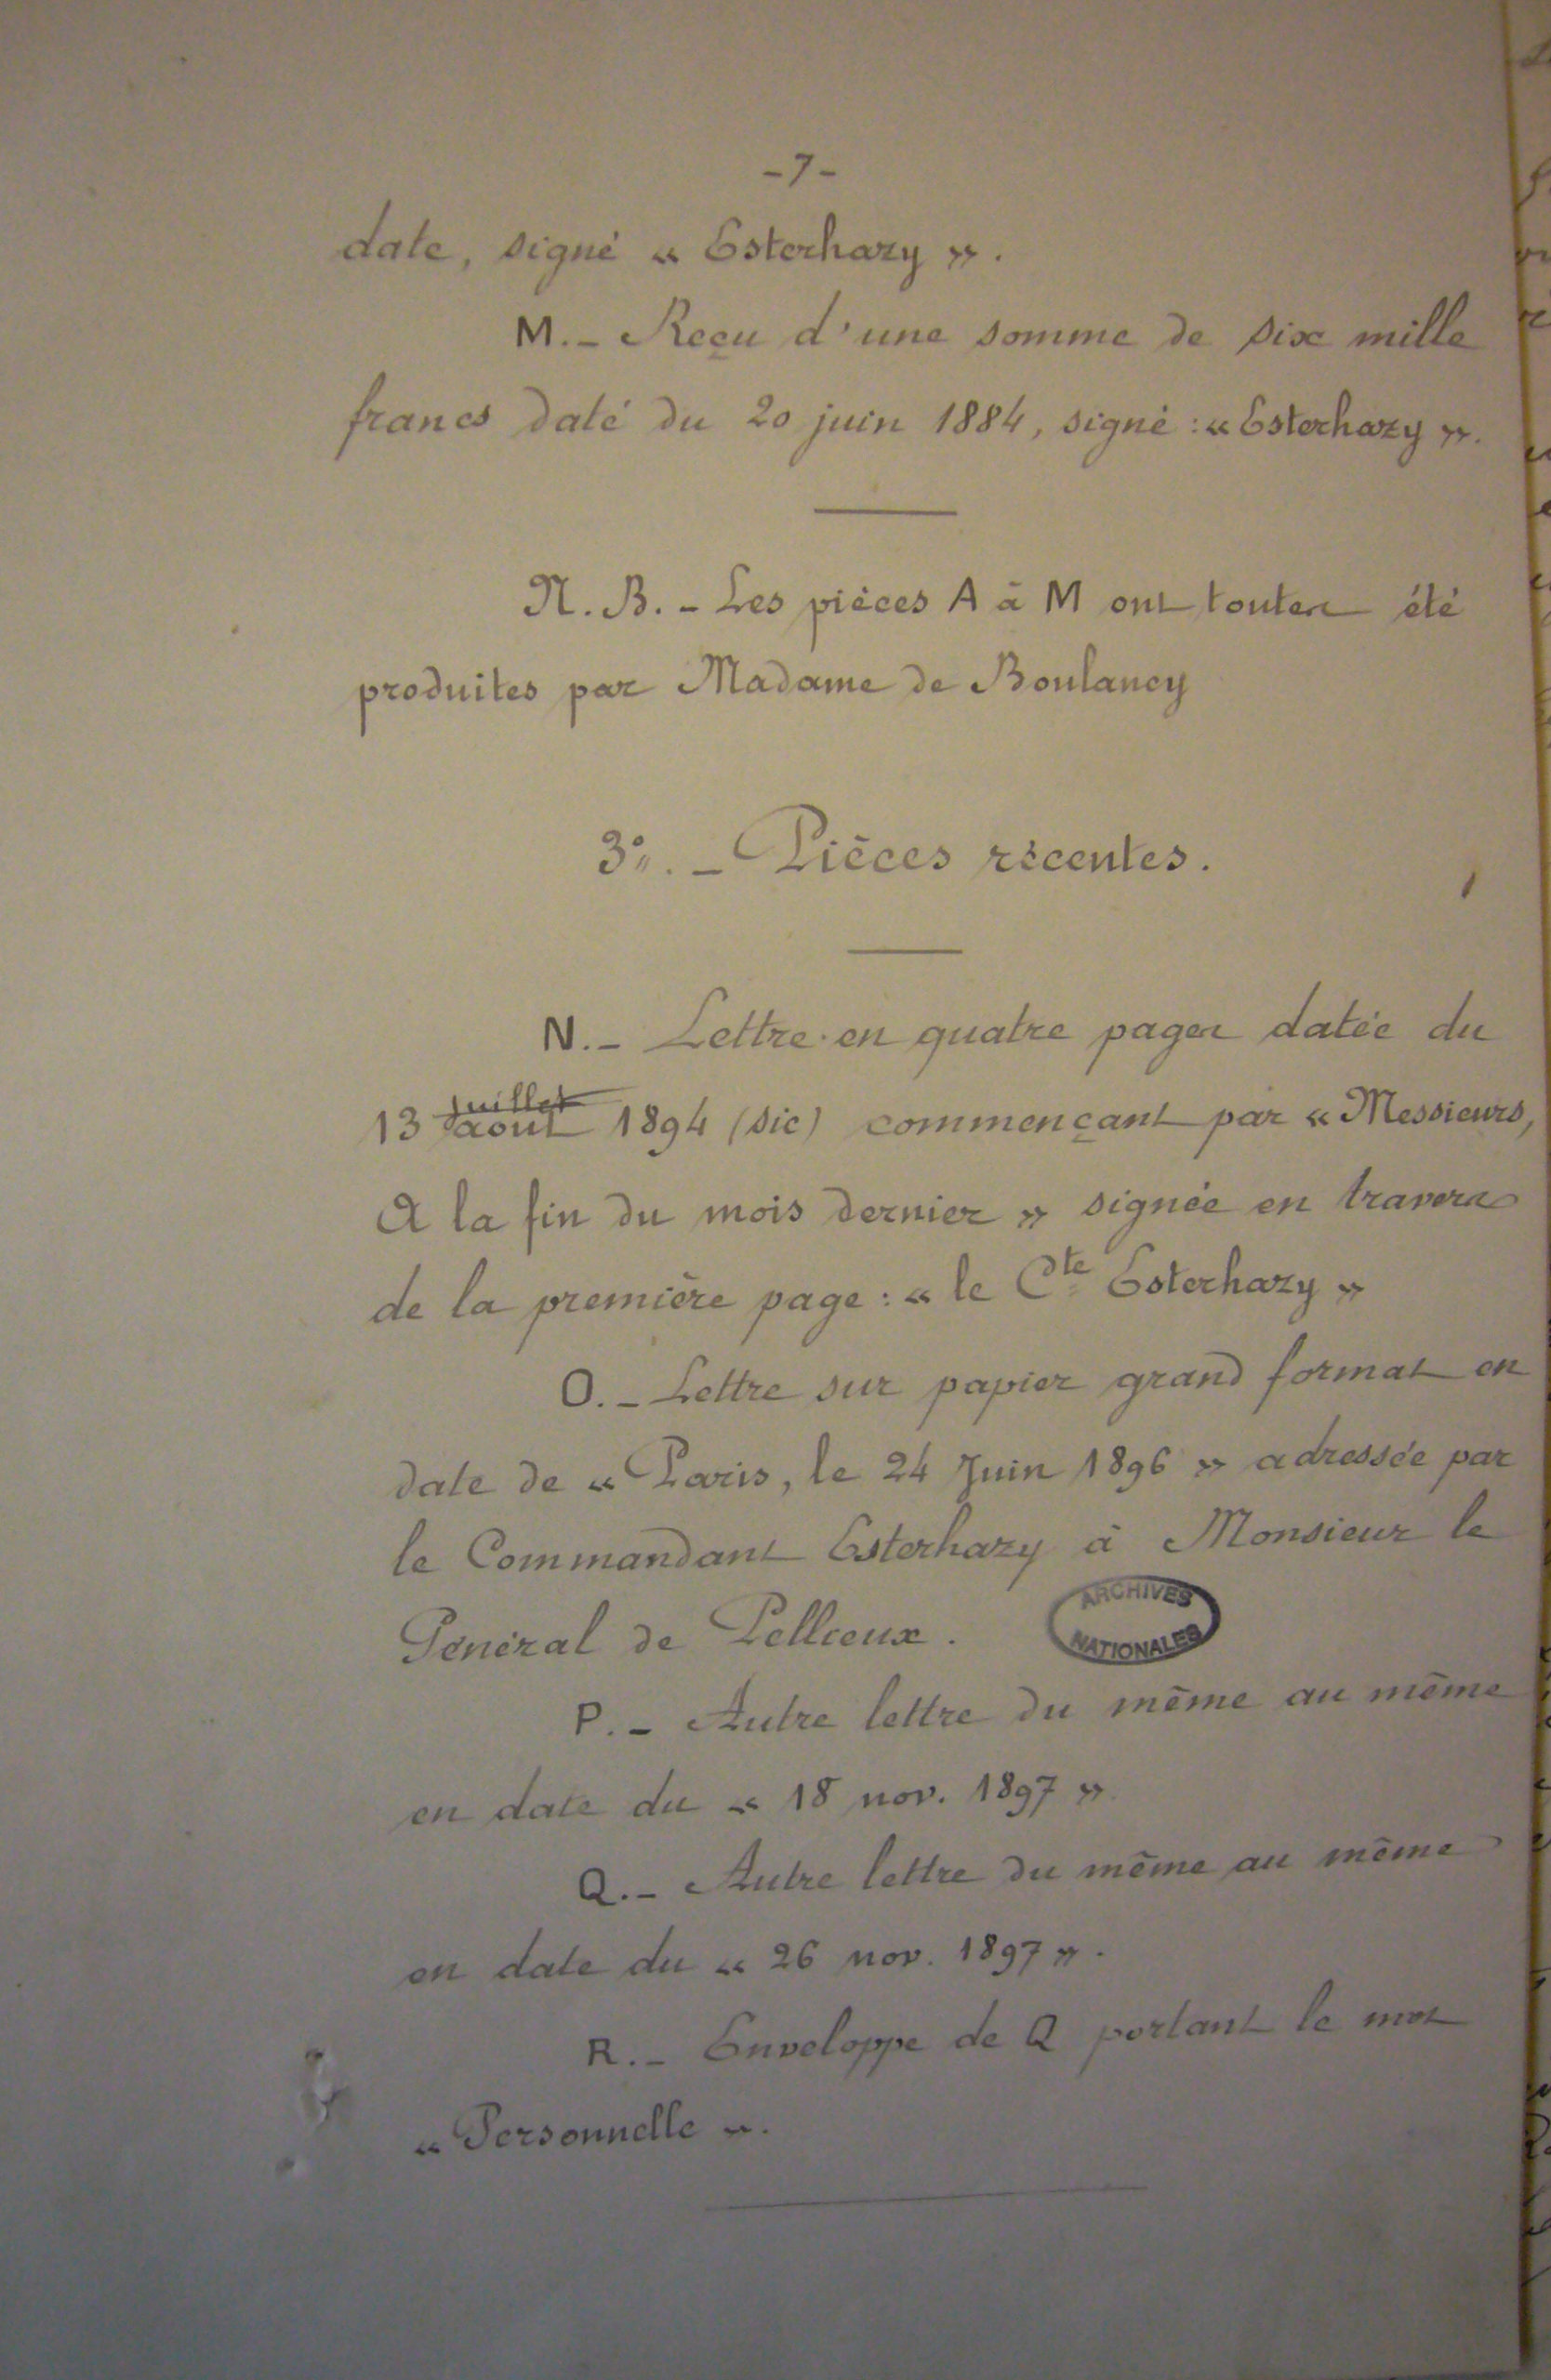 -7-
date, signé « Esterhazy ».
M. - Reçu d'une somme de six mille
francs daté du 20 juin 1884, signé : « Esterhazy ».
N. B. - Les pièces A à M ont toutes été
produites par Madame de Boulancy
3°. - Pièces récentes.
N. - Lettre en quatre pages datée du
juillet
13 août 1894 (sic) commençant par « Messieurs,
A la fin du mois dernier » signée en travers
de la première page : « le Cte Esterhazy »
O. - Lettre sur papier grand format en
date de « Paris, le 24 Juin 1896 » adressée par
le Commandant Esterhazy à Monsieur le
Général de Pellieux.
ARCHIVES
NATIONALES
P. - Autre lettre du même au même
en date du « 18 nov. 1897 ».
Q. - Autre lettre du même au même
en date du « 26 nov. 1897 ».
R. - Enveloppe de Q portant le mot
« Personnelle ».